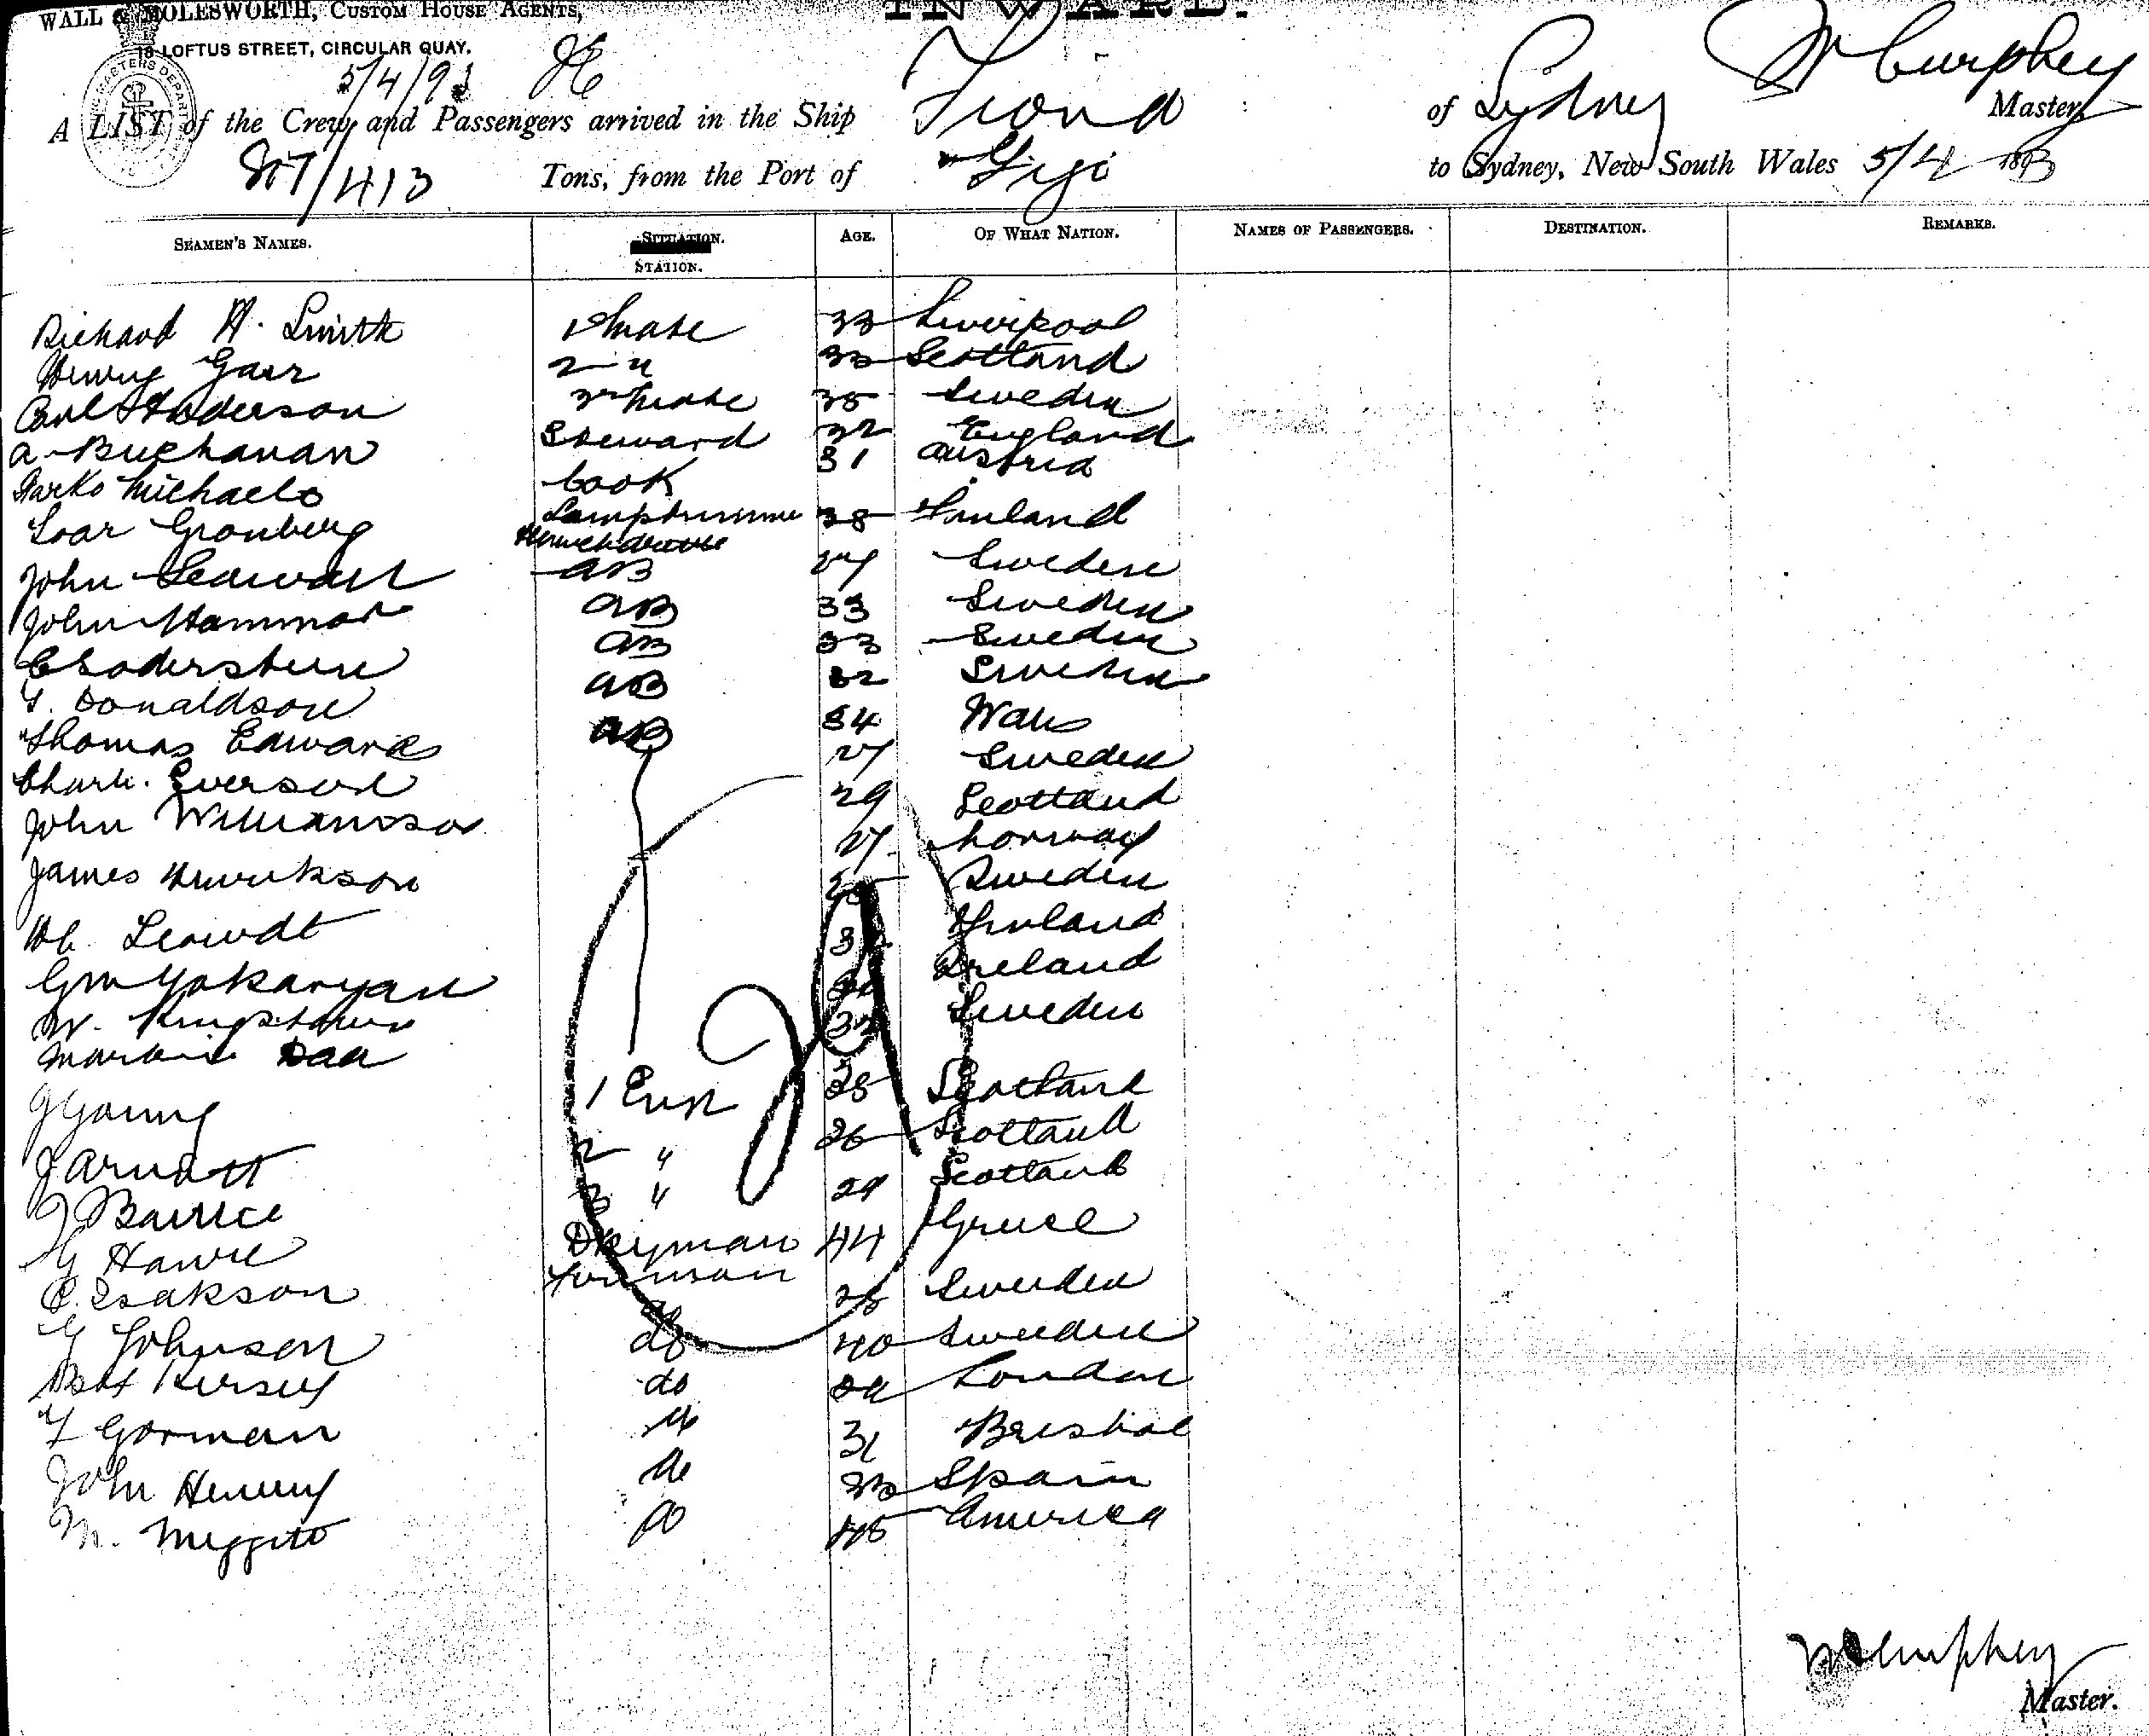 WALL & MOLESWORTH, CUSTOM HOUSE AGENTS,
INWARD.
18 LOFTUS STREET, CIRCULAR QUAY.
5/4/93
A LIST of the Crew and Passengers arrived in the Ship Fiona of Sydney W Curphey Master,
807/413 Tons, from the Port of Fiji to Sydney, New South Wales 5/4 1893
SEAMEN'S NAMES. SITUATION. STATION. AGE. OF WHAT NATION. NAMES OF PASSENGERS. DESTINATION. REMARKS.
Richard H. Smith 1st mate 33 Liverpool
Henry Garr 2 " 33 Scotland
Carl Anderson 3rd mate 38 Sweden
A Buchanan Steward 32 England
Michaelo Cook 31 Austria
Gronberg Lamptrimmer 38 Finland
John AB 27 Sweden
John Hammar AB 33 Sweden
C Soderstein AB 23 Sweden
Donaldson AB 32 Sweden
Thomas Edwards AB 34 Wales
Charls. Iverson 27 Sweden
John Williamson 29 Scotland
James Henrikson 27 Norway
Sweden
Finland
W. Kingstown Ireland
Martin Daa Sweden
J Young 1 Eng 28 Scotland
J Arnott 2 " 26 Scotland
J Barrie 3 " 29 Scotland
Hawie Dkyman 44 Greece
C. Isakson Fireman 28 Sweden
Johnson do 40 Sweden
Robt Kersey do London
Gorman do 31 Bristol
John Henery do 33 Spain
M. Meggito do 45 America
W Curphey
Master.